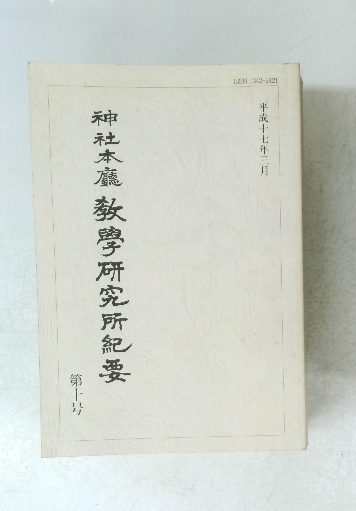 ISSN 1342-2421
平成十七年三月
神社本廳 教學研究所紀要
第十号